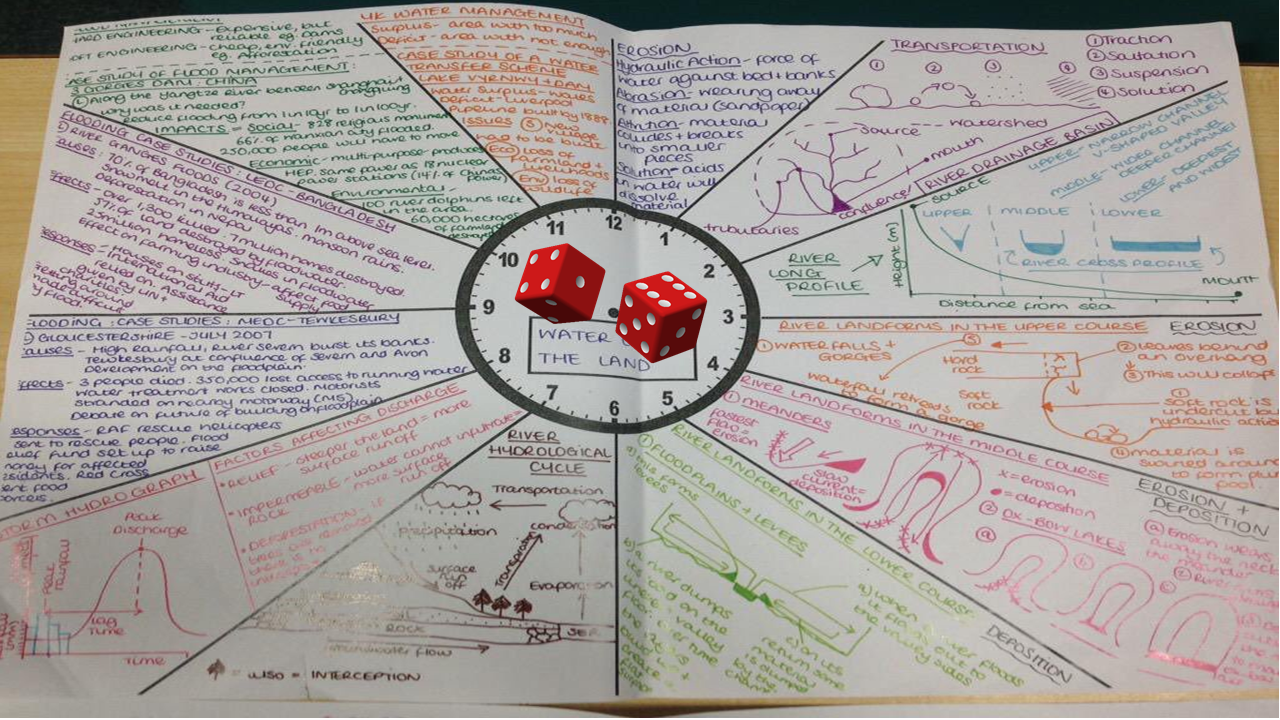 HARD ENGINEERING - Expensive, but
reliable eg. Dams
SOFT ENGINEERING - cheap, env. friendly
eg. Afforestation
CASE STUDY OF FLOOD MANAGEMENT:
3 GORGES DAM: CHINA
Along the Yangtze River between
why was it needed?
reduce flooding from 1 in 10yr to 1 in 100yr.
IMPACTS = Social - 828 religious monument
66% of Wanxian city flooded.
250,000 people will have to move
Economic - multi-purpose - produces
HEP, same power as 18 nuclear
power stations (14% of China's Power)
Environmental -
100 river dolphins left
in the area.
60,000 hectares
of farmland
UK WATER MANAGEMENT
Surplus - area with too much
Deficit - area with not enough
CASE STUDY OF A WATER
TRANSFER SCHEME
LAKE VYRNWY + DAM
Water Surplus - Wales
Deficit - Liverpool
Pipeline built by 1888
ISSUES (S) New village
had to be built
(Eco) Loss of
farmland +
livelihoods
(Env) loss of
wildlife
EROSION
Hydraulic Action - force of
water against bed + banks
Abrasion - wearing away
of material (sandpaper)
Attrition - material
collides + breaks
into smaller
pieces
Solution - acids
in water will
dissolve
material
TRANSPORTATION
① Traction
② Saltation
③ Suspension
④ Solution
① ② ③ ④
Source
Watershed
mouth
confluence
tributaries
RIVER DRAINAGE BASIN
UPPER - NARROW CHANNEL
V-SHAPED VALLEY
MIDDLE - WIDER CHANNEL
DEEPER CHANNEL
LOWER - DEEPEST
AND WIDEST
SOURCE
UPPER MIDDLE LOWER
RIVER CROSS PROFILE
RIVER
LONG
PROFILE
Height (m)
MOUTH
Distance from sea
RIVER LANDFORMS IN THE UPPER COURSE
EROSION
① WATERFALLS +
GORGES
⑤
Hard
rock
② Leaves behind
an overhang
③ This will collapse
waterfall retreats
to form a gorge
Soft
rock
①
Soft rock is
undercut by
hydraulic action
④ material is
swirled around
to form plunge
pool.
RIVER LANDFORMS IN THE MIDDLE COURSE
EROSION +
DEPOSITION
① MEANDERS
Fastest
flow =
erosion
slow
current =
deposition
x = erosion
● = deposition
② OX-BOW LAKES
ⓐ
ⓑ
ⓒ
ⓐ Erosion wears
away the neck
the meander
River
RIVER LANDFORMS IN THE LOWER COURSE
DEPOSITION
① FLOODPLAINS + LEVEES
a) This forms
b) a river dumps
its load on
the valley
over time
a) when a river floods
it flows out to
the valley sides
c) on its
return, some
material
is dumped
by the
channel
RIVER
HYDROLOGICAL
CYCLE
Transportation
precipitation
condensation
Transpiration
surface
run
off
Evaporation
ROCK
SEA
Groundwater flow
= ALSO = INTERCEPTION
FACTORS AFFECTING DISCHARGE
RELIEF - steeper the land = more
surface run off
IMPERMEABLE - water cannot infiltrate =
ROCK more surface
run off
DEFORESTATION - if
trees are removed
there is no
STORM HYDROGRAPH
Peak
Discharge
Peak
rainfall
Lag
Time
Time
FLOODING: CASE STUDIES: MEDC - TEWKESBURY
GLOUCESTERSHIRE - JULY 2007
Causes - High Rainfall, River Severn burst its banks.
Tewkesbury at confluence of Severn and Avon
Development on the floodplain.
Effects - 3 people died. 350,000 lost access to running water
Water treatment works closed. Motorists
stranded on nearby motorway (M5)
Debate on future of building on floodplain
Responses - RAF rescue helicopters
sent to rescue people. Flood
relief fund set up to raise
money for affected
residents. Red Cross
sent food
parcels.
FLOODING CASE STUDIES: LEDC - BANGLADESH
RIVER GANGES FLOODS (2004)
Causes: 70% of Bangladesh is less than 1m above sea level.
Snowmelt in the Himalayas. monsoon rains.
Deforestation in Nepal
Effects - Over 1,300 killed. 7 million homes destroyed.
37% of land destroyed by floodwater.
25 million homeless. Snakes in floodwater.
Effect on farming industry - affect food
supply
Responses - Houses on stilts
- International Aid
relied on. Assistance
given by UN +
charities
12 1 2 3 4 5 6 7 8 9 10 11
WATER
THE LAND